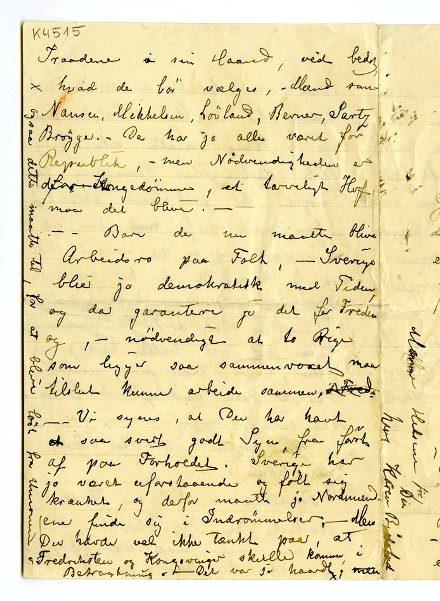 K4515
Traadene i sin Haand, véd bedst
hvad de bör vælges, – Mænd som
Nansen, Michelsen, Lövland, Berner, Sars,
Brøgge. – De har jo alle været for
Republik, – men Nödvendigheden er
Kongedömme, et tarveligt Hof
maa det blive. –
– – Bare de nu maatte blive
Arbeidsro paa Folk, – Sverige
blir jo demokratisk med Tiden,
og da garantere jo det for Freden
og, – nödvendigt at to Riger
som ligger saa sammenvoxet maa
tilslut kunne arbeide sammen,
– – Vi synes, at Du har havt
saa svært godt Syn fra först
af paa Forholdet. Sverige har
jo været uforstaaende og fölt sig
krænket, og derfor maatte jo Nordmænd
ene finde sig i Indrömmelser, – Men
Du havde vel ikke tænkt paa, at
Fredriksten og Kongsvinger skulle komme i
Betragtning – Det var jo haardt, men
x ogsaa dette maatte til, for at blive löst fra Unionen
Din
Karen